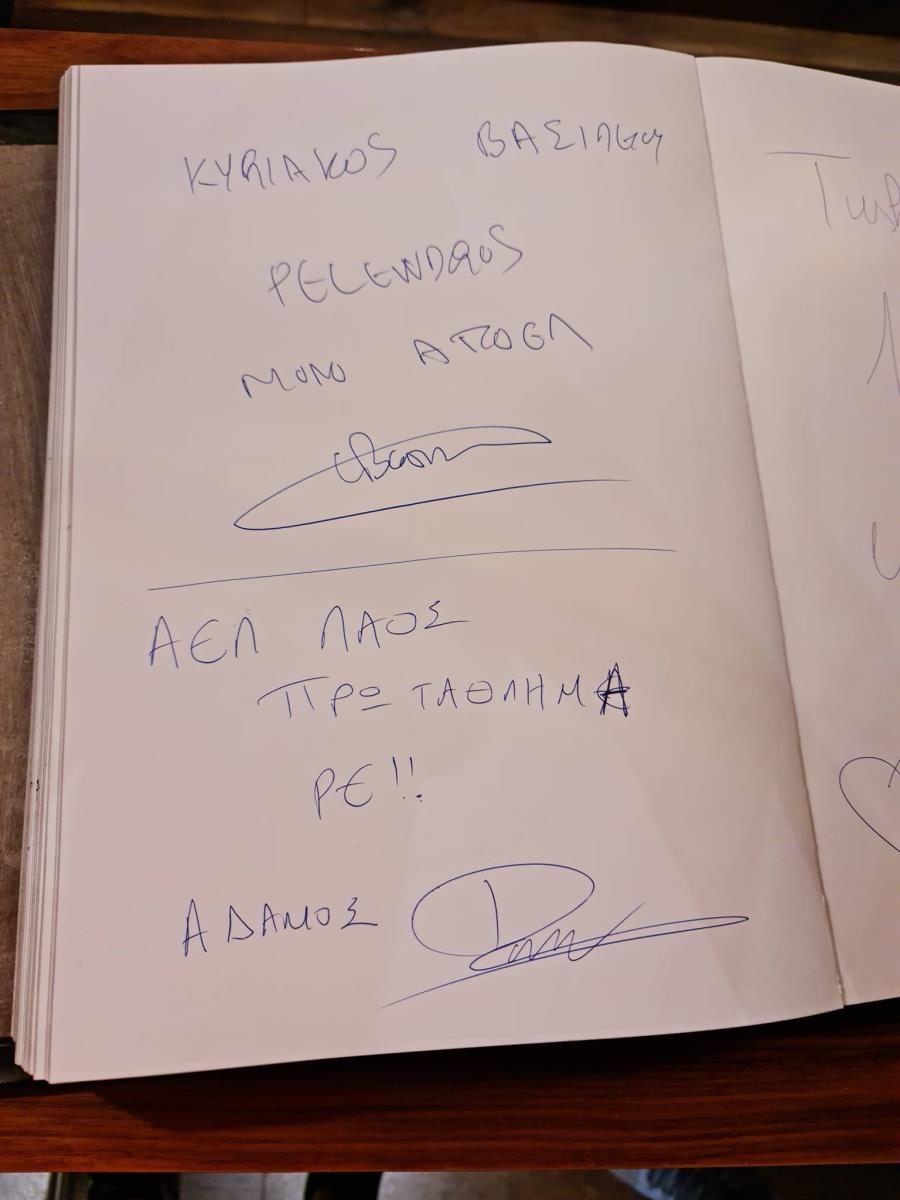 KYRIAKOS ΒΑΣΙΛΙΚΟΥ
PELENDROS
MONO ΑΠΟΕΛ
ΑΕΛ ΛΑΟΣ
ΠΡΩΤΑΘΛΗΜΑ
ΡΕ!!
ΑΔΑΜΟΣ